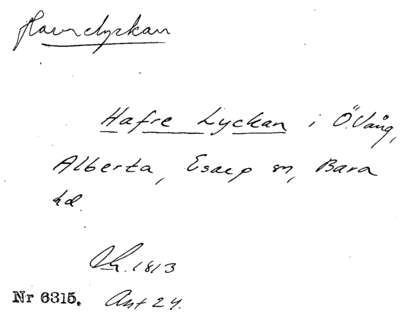 Havrelyckan
Hafre Lyckan i Ö. Vång,
Alberta, Esarp sn, Bara
hd.
Sk. 1813
Nr 6315. Akt 24.